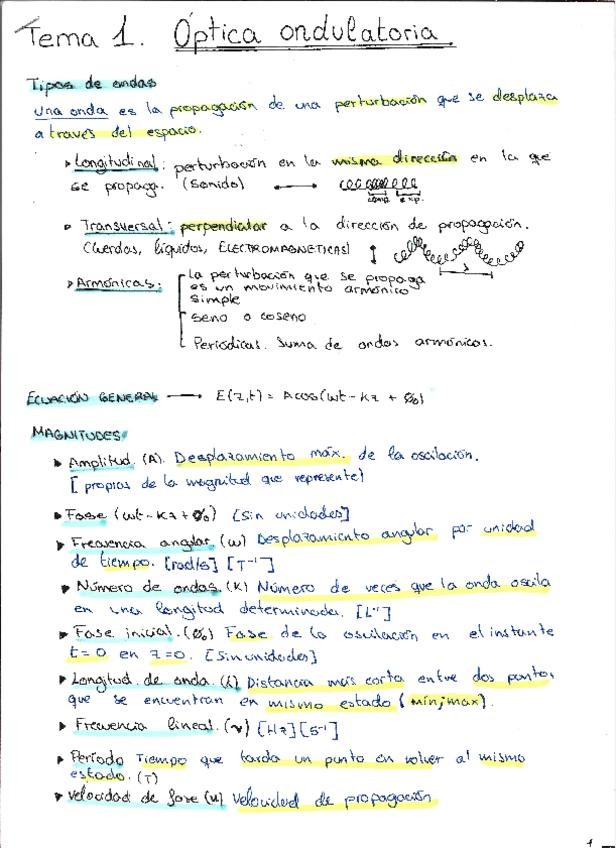 Tema 1. Óptica ondulatoria.
Tipos de ondas
Una onda es la propagación de una perturbación que se desplaza
a través del espacio.
▸ Longitudinal: perturbación en la misma dirección en la que
se propag. (sonido)
comp. exp.
▸ Transversal: perpendicular a la dirección de propagación.
(Cuerdas, líquidos, ELECTROMAGNETICAS)
λ
▸ Armónicas: la perturbación que se propaga
es un movimiento armónico
simple
seno o coseno
Periódicas. Suma de ondas armónicas.
ECUACIÓN GENERAL → E(z,t) = A cos(ωt - kz + φ₀)
MAGNITUDES
▸ Amplitud (A). Desplazamiento máx. de la oscilación.
[propias de la magnitud que represente)
▸ Fase (ωt - kz + φ₀) [Sin unidades]
▸ Frecuencia angular (ω) Desplazamiento angular por unidad
de tiempo. [rad/s] [T⁻¹]
▸ Número de ondas (K) Número de veces que la onda oscila
en una longitud determinada. [L⁻¹]
▸ Fase inicial. (φ₀) Fase de la oscilación en el instante
t=0 en z=0. [Sin unidades]
▸ Longitud de onda (λ) Distancia más corta entre dos puntos
que se encuentran en mismo estado (mín; max).
▸ Frecuencia lineal. (ν) [Hz] [S⁻¹]
▸ Período Tiempo que tarda un punto en volver al mismo
estado. (T)
▸ Velocidad de fase (u) Velocidad de propagación
1